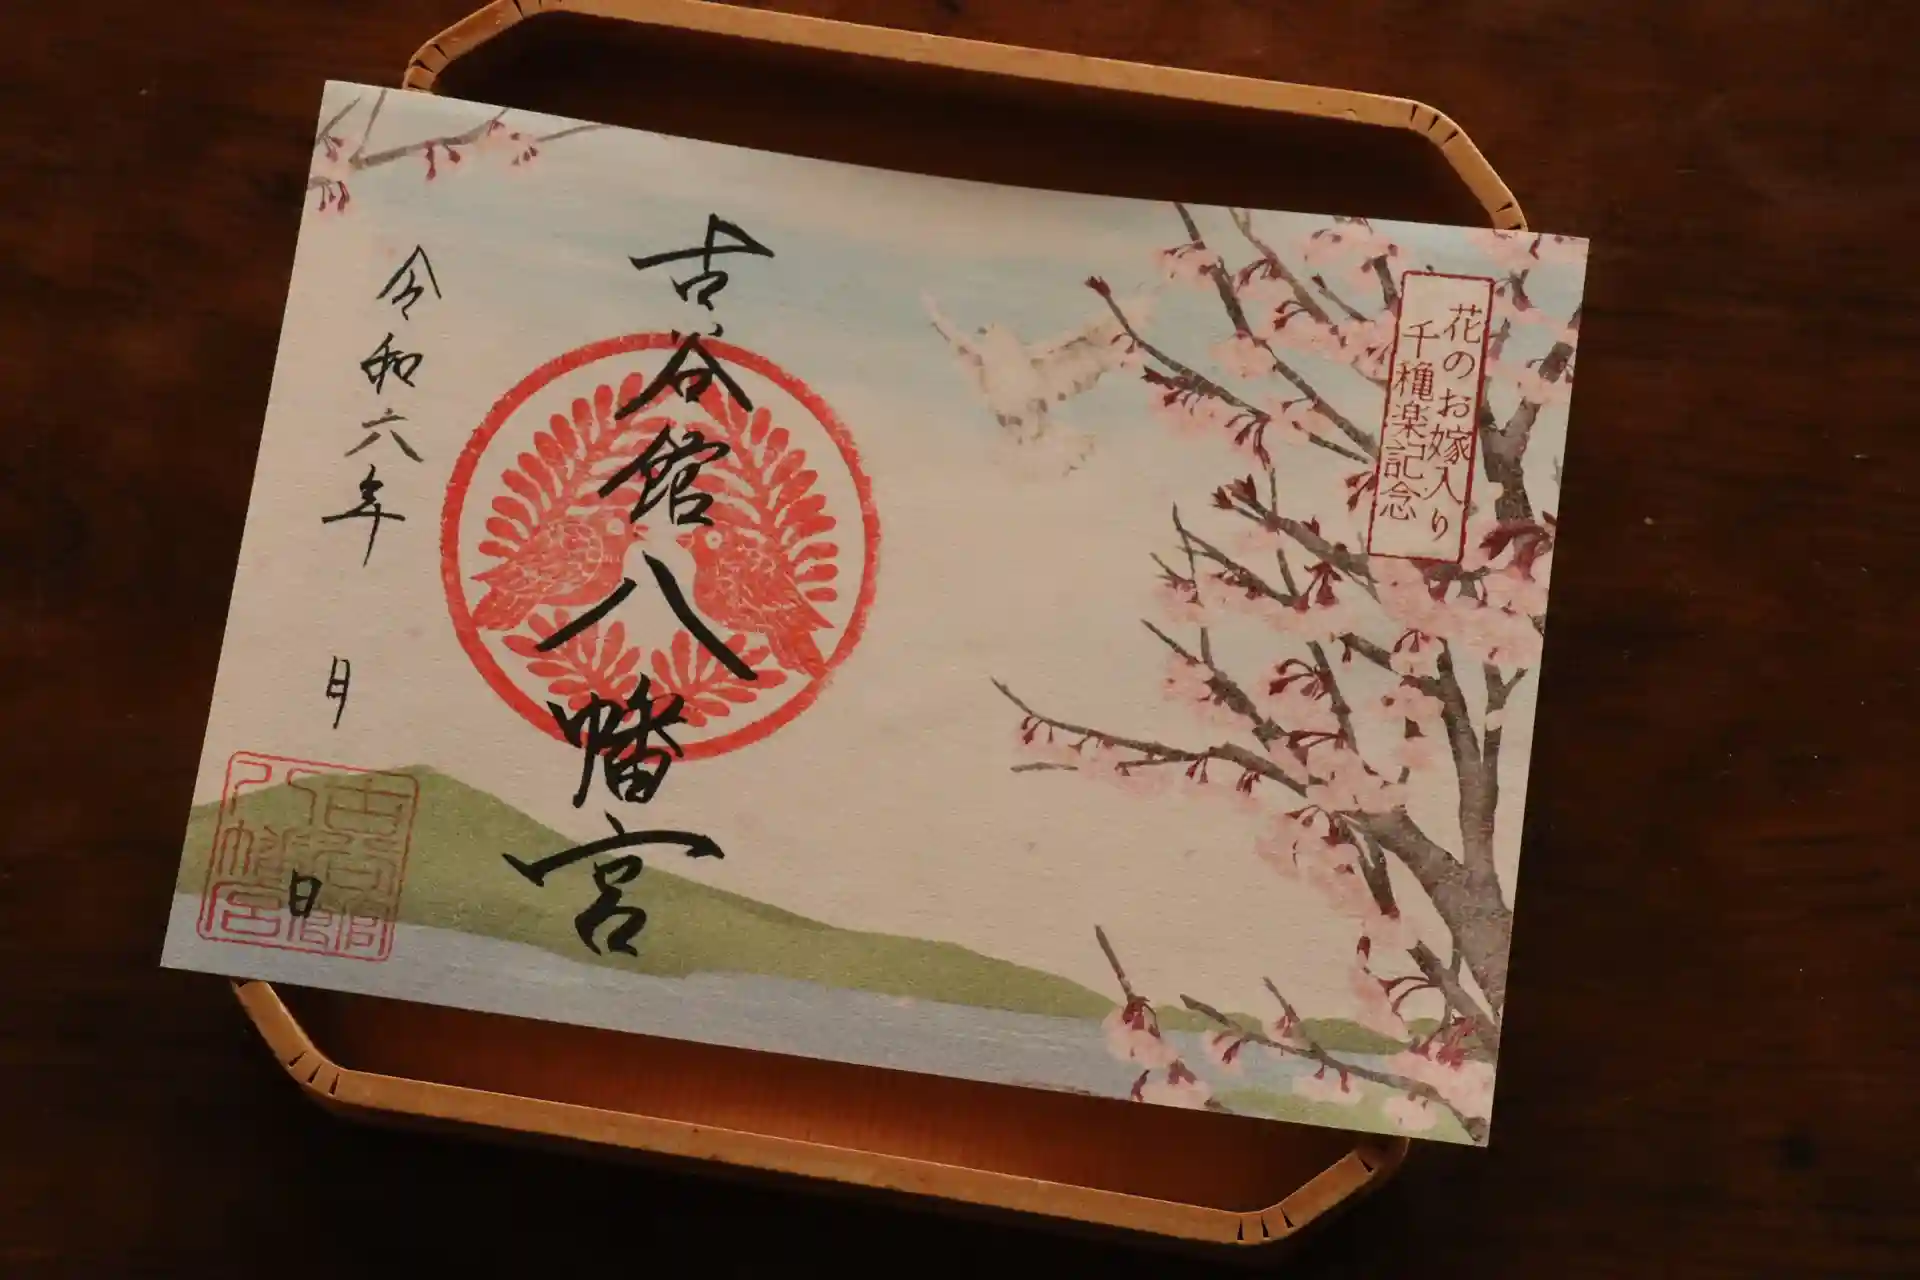 花のお嫁入り
千穐楽記念
古谷館八幡宮
令和六年 月 日
古谷館
八幡宮